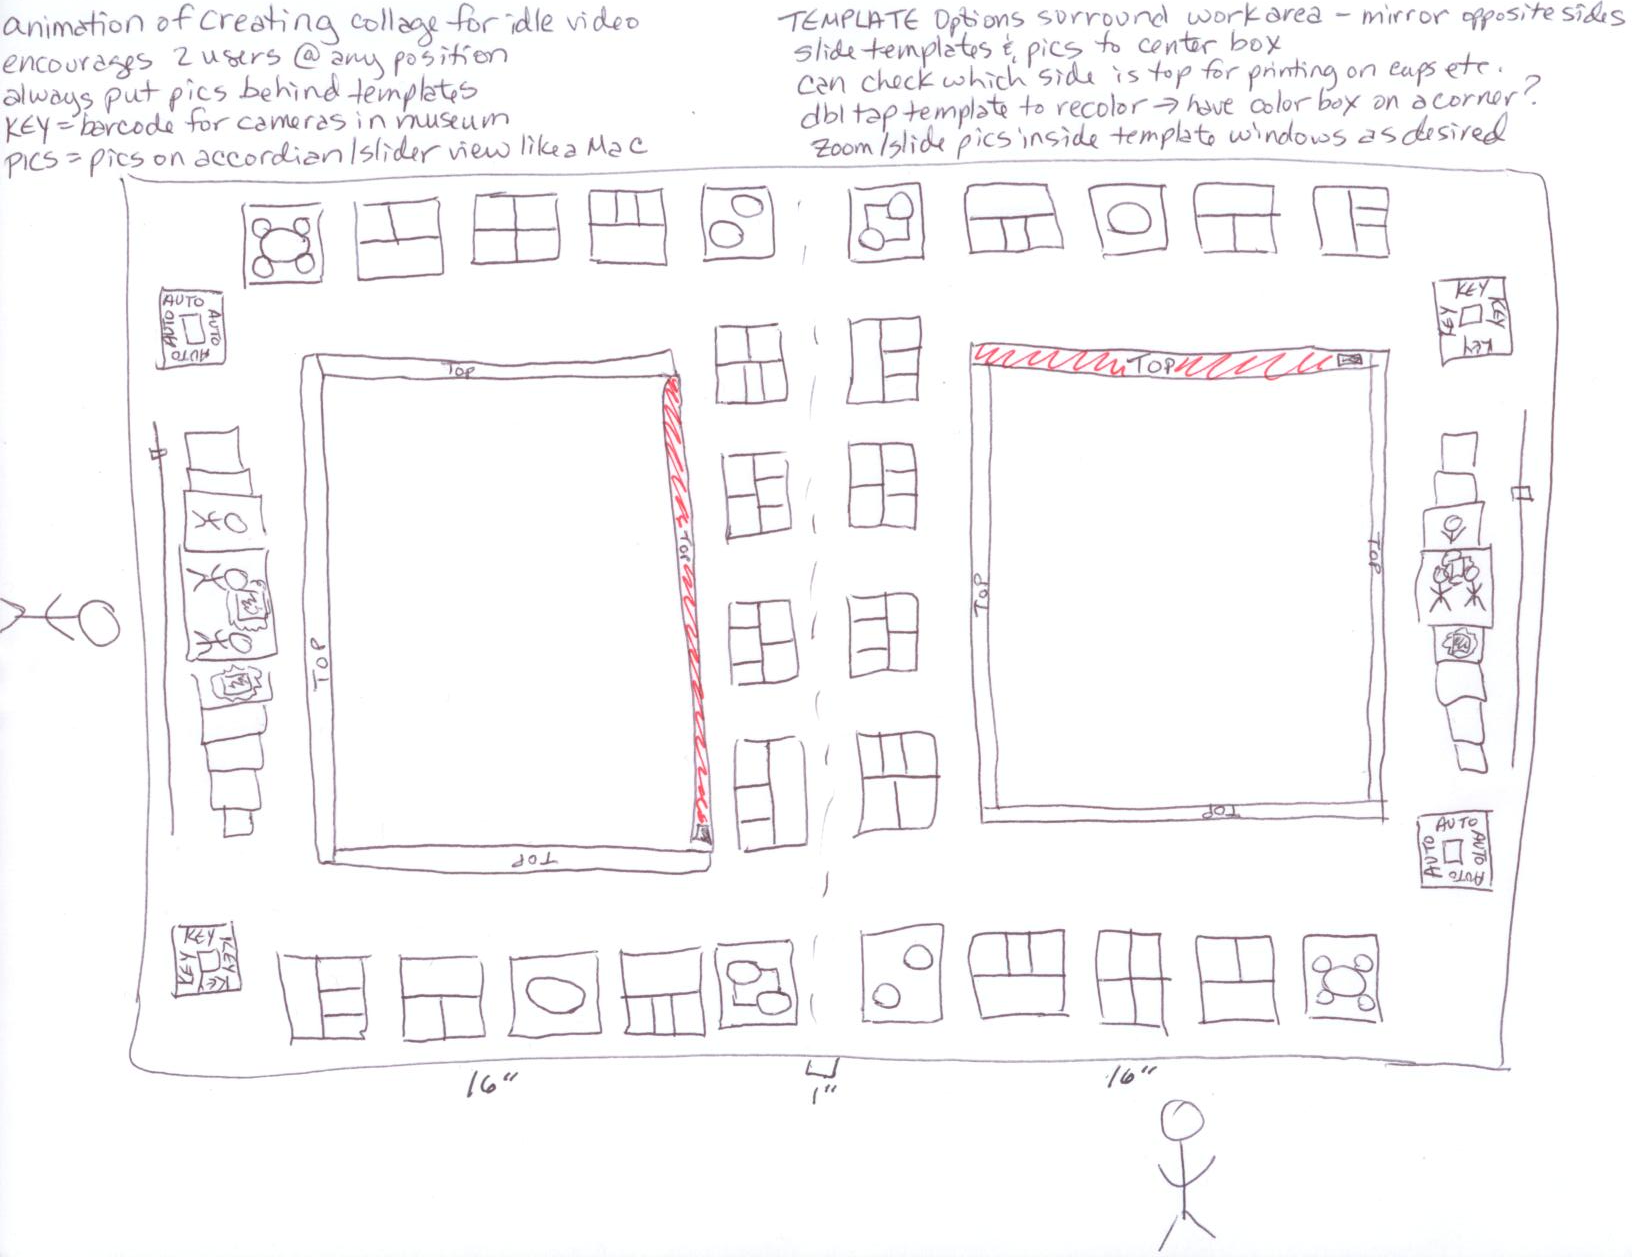 animation of creating collage for idle video
encourages 2 users @ any position
always put pics behind templates
KEY = barcode for cameras in museum
PICS = pics on accordian/slider view like a Mac
TEMPLATE Options surround work area - mirror opposite sides
slide templates & pics to center box
can check which side is top for printing on cups etc.
dbl tap template to recolor → have color box on a corner?
Zoom/slide pics inside template windows as desired
AUTO
AUTO
AUTO
AUTO
KEY
KEY
KEY
KEY
TOP
TOP
TOP
TOP
TOP
TOP
TOP
TOP
KEY
KEY
KEY
KEY
AUTO
AUTO
AUTO
AUTO
16"
1"
16"